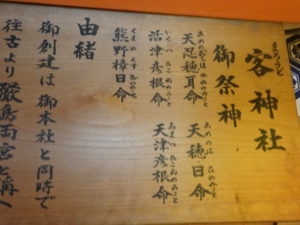 客神社
御祭神
天忍穂耳命
天穂日命
活津彦根命
天津彦根命
熊野樟日命
由緒
御創建は御本社と同時で
往古より厳島両宮と称へ